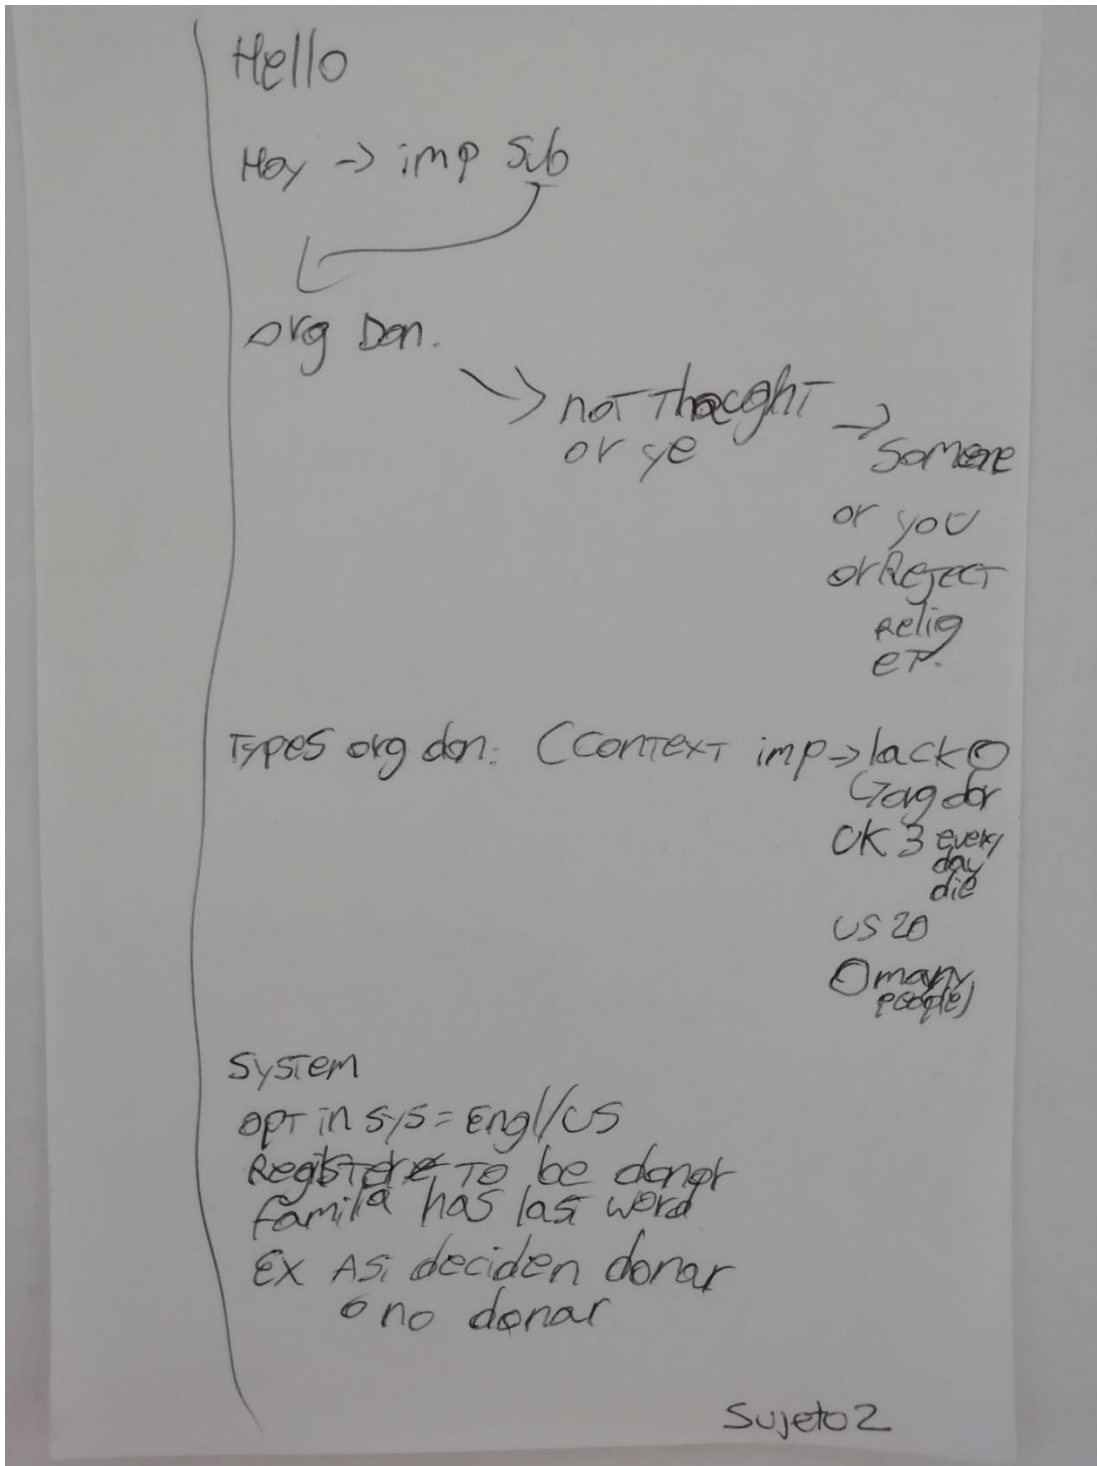 Hello
Hoy -> imp Sub
org Don.
noT ThougHT ->
or ye
Someone
or you
or Reject
Relig
eT.
Types org don: (conTexT imp -> lack
org don
UK 3 every
day
die
US 20
many
people)
System
opT in sys = Engl/US
Register To be donor
familia has last word
EX Asi deciden donar
o no donar
Sujeto 2